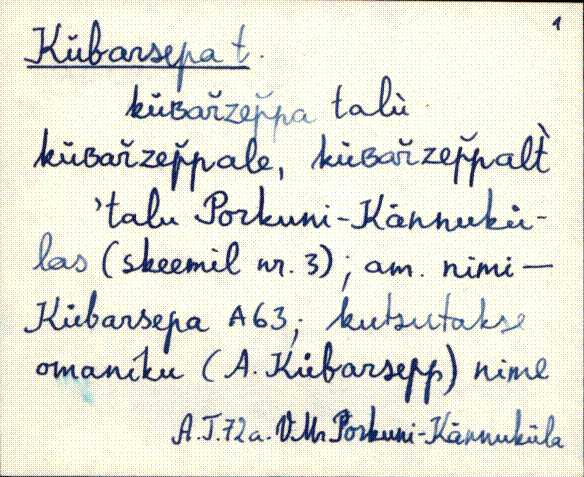 1
Kübarsepa t.
küʙar̆zep̆pa talù
küʙar̆zep̆pale, küʙar̆zep̆palt̀
'talu Porkuni-Kännukü-
las (skeemil nr. 3); am. nimi —
Kübarsepa A63; kutsutakse
omaniku (A. Kübarsepp) nime
A.J.72a. V.Mr Porkuni-Kännuküla